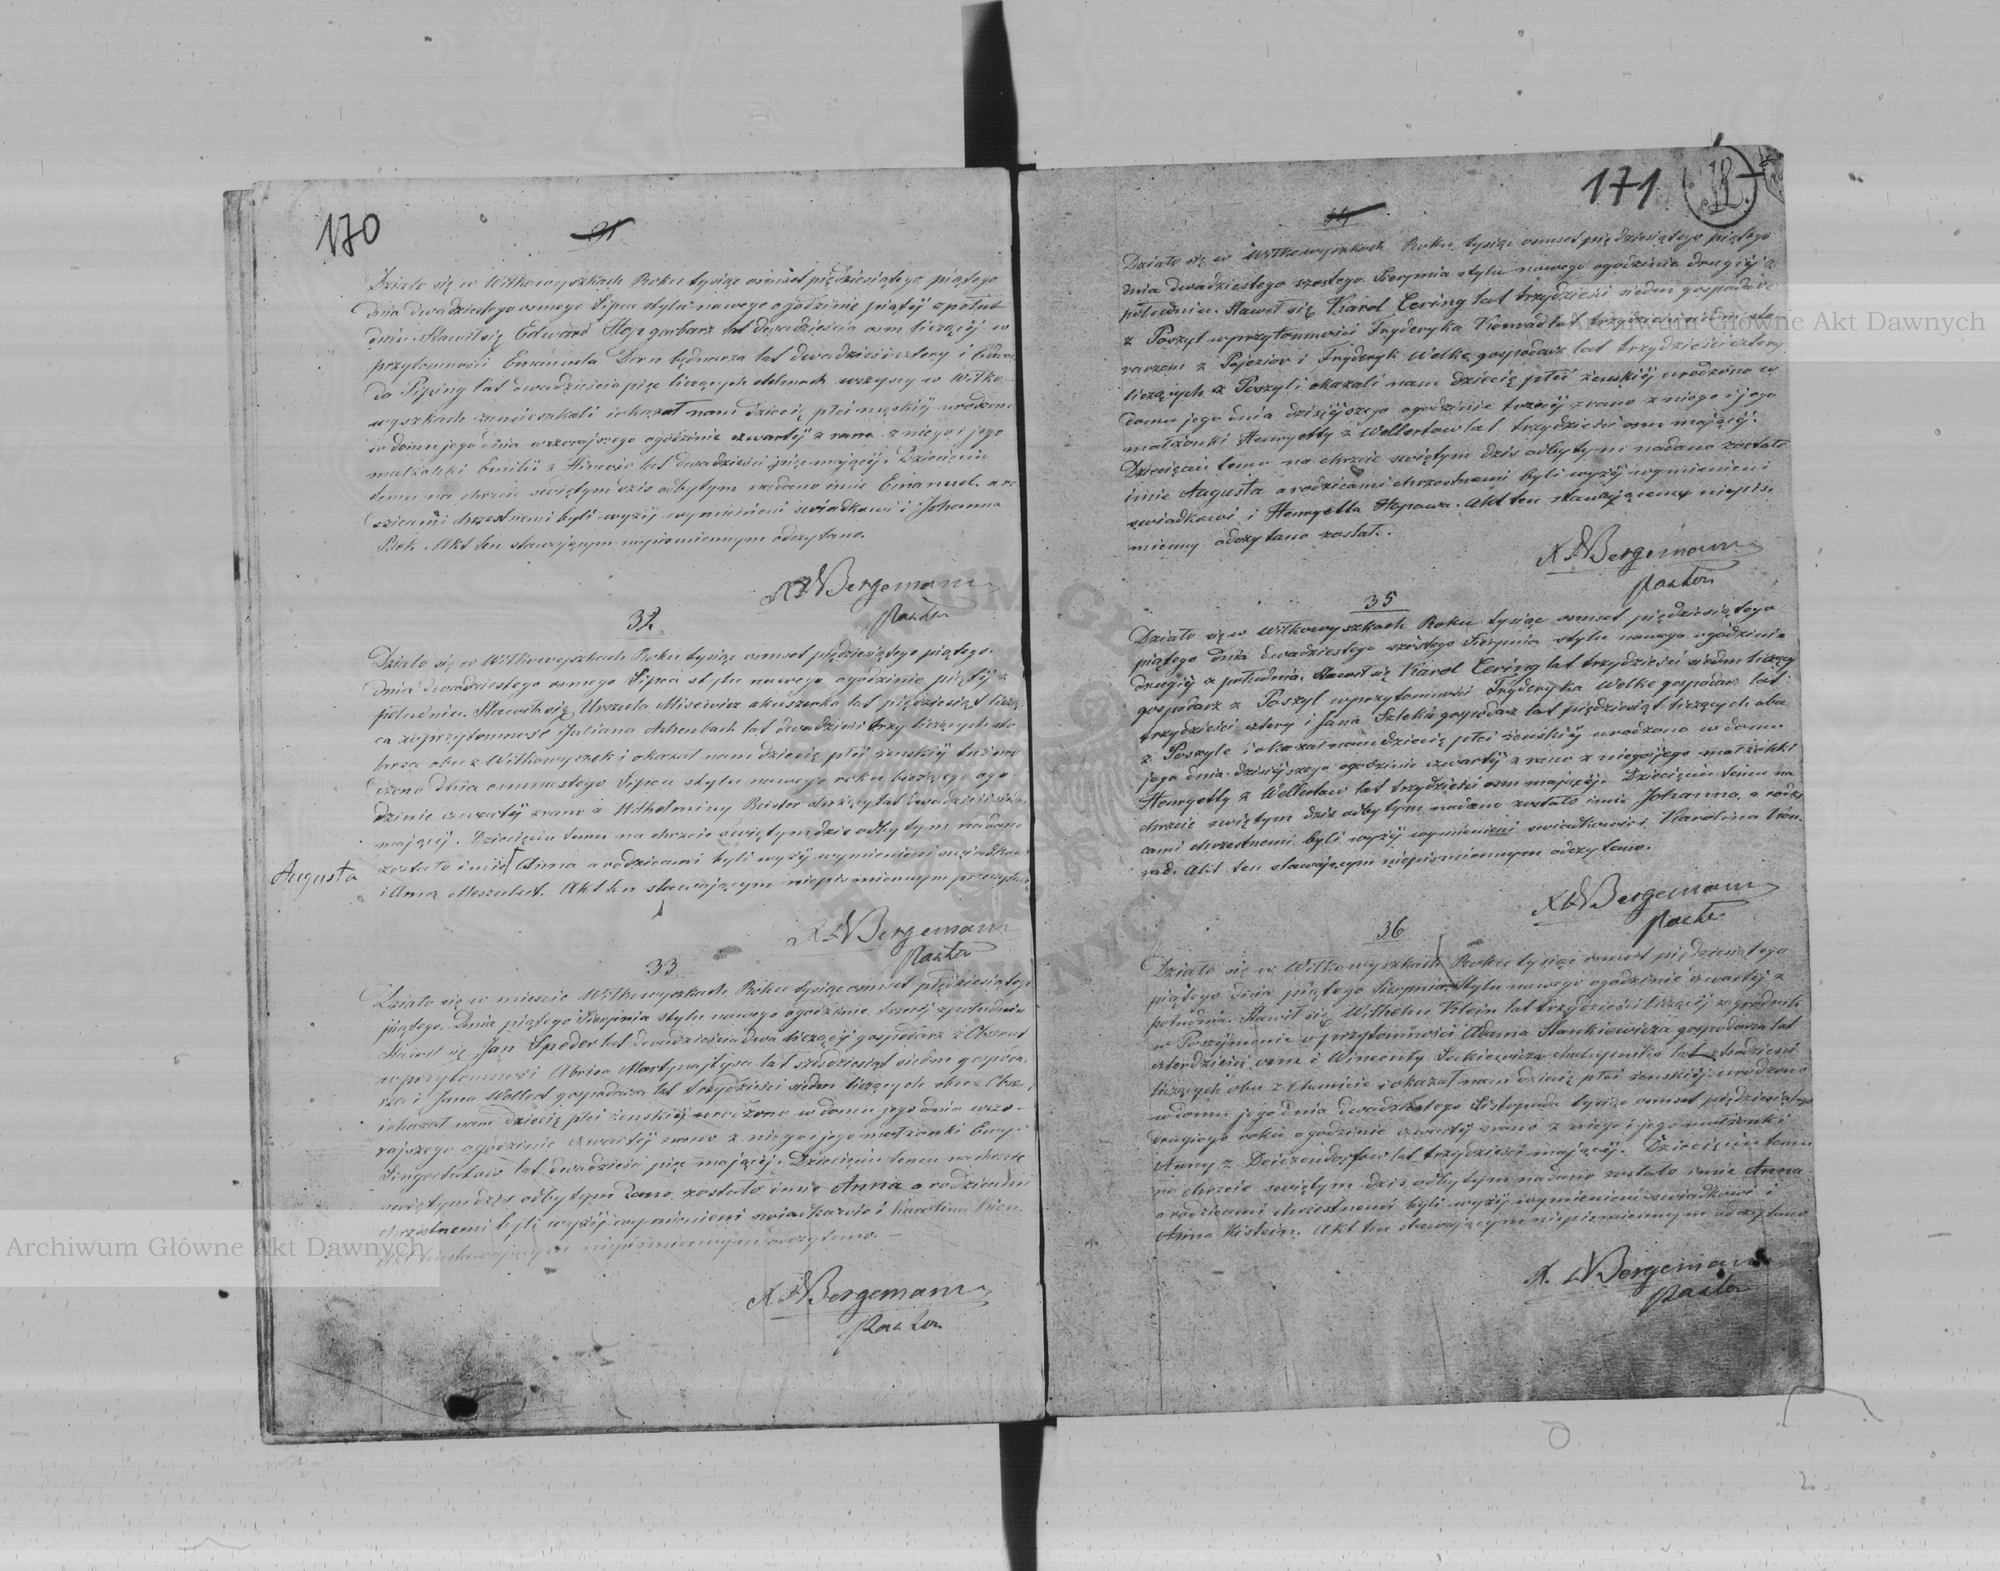 170
31
Działo się w Wiłkowyszkach Roku tysiąc ośmset pięćdziesiątego piątego
dnia dwudziestego ósmego Lipca stylu nowego o godzinie piątéj z połud-
dniu. Stawił się Edward garbarz lat dwadzieścia osm liczący w
przytomności Emanuela Dorn bednarza lat dwadzieścia cztery i Edwar-
da lat dwadzieścia pięć liczących wszyscy w Wiłko-
wyszkach zamieszkali i okazał nam dziecię płci męzkiéj urodzone
w domu jego dnia wczorajszego o godzinie czwartéj z rana z niego i jego
małżonki Emilii z lat dwadzieścia pięć mającéj. Dziecięciu
temu na chrzcie świętym dziś odbytym nadano imie Emanuel a ro-
dzicami chrzestnemi byli wyżéj wymienieni świadkowie i Johanna
Akt ten stawającym niepismiennym odczytano.
Bergemann
Pastor
32
Działo się w Wiłkowyszkach Roku tysiąc ośmset pięćdziesiątego piątego
dnia dwudziestego osmego Lipca stylu nowego o godzinie piątéj z
południu. Stawiła się Urszula Misiewicz akuszerka lat pięćdziesiąt licząca
w przytomność Juliana Achenbach lat dwadzieścia trzy liczących sto-
larza obu z Wiłkowyszek i okazał nam dziecię płci żeńskiéj
dnia osmnastego Lipca stylu nowego roku bieżącego o go-
dzinie czwartéj z rana z Wilhelminy lat dwadzieścia siedm
mającéj. Dziecięciu temu na chrzcie świętym dziś odbytym nadano
zostało imie Anna a rodzicami byli wyżéj wymienieni świadkowie
Augusta
i Anna Akt ten stawającym niepismiennym przeczytano
Bergemann
Pastor
33
Działo się w mieście Wiłkowyszkach Roku tysiąc ośmset pięćdziesiątego
piątego. Dnia piątego Sierpnia stylu nowego o godzinie trzeciéj z południa
Stawił się Jan lat dwadzieścia dwa liczący gospodarz z
w przytomności lat sześdziesiąt siedm gospoda-
rza i Jana Wellert gospodarza lat trzydzieści siedm liczących obu z
i okazał nam dziecię płci żeńskiéj urodzone w domu jego dnia wczo-
rajszego o godzinie czwartéj z rana z niego i jego małżonki
lat dwadzieścia pięć mającéj. Dziecięciu temu na chrzcie
świętym dziś odbytym dano zostało imie Anna a rodzicami
chrzestnemi byli wyżéj wymienieni świadkowie i Karolina
Akt ten stawającym niepismiennym odczytano. —
Bergemann
Pastor
171
34
Działo się w Wiłkowyszkach Roku tysiąc ośmset pięćdziesiątego piątego
dnia dwudziestego szostego Sierpnia stylu nowego o godzinie drugiéj z
południu. Stawił się Karol Cering lat trzydzieści siedm gospodarz
z Poszyl w przytomności Fryderyka Konrad lat
z Pojezior i Fryderyk Welke gospodarz lat trzydzieści cztery
liczących z Poszyl i okazali nam dziecię płci żeńskiéj urodzone w
domu jego dnia dzisiéjszego o godzinie trzeciéj z rana z niego i jego
małżonki Henryetty z Wellertow lat trzydzieści osm mającéj.
Dziecięciu temu na chrzcie świętym dziś odbytym nadano zostało
imie Augusta a rodzicami chrzestnemi byli wyżéj wymienieni
świadkowi i Henryetta Akt ten stawającemu niepis-
miemny odczytano został.
Bergemann
Pastor
35
Działo się w Wiłkowyszkach Roku tysiąc ośmset pięćdziesiątego
piątego dnia dwudziestego szóstego Sierpnia stylu nowego o godzinie
drugiéj z południa. Stawił się Karol Cering lat trzydzieści siedm liczący
gospodarz z Poszyl w przytomności Fryderyka Welke gospodarz lat
trzydzieści cztery i Jana gospodarz lat pięćdziesiąt liczących obu
z Poszyle i okazał nam dziecię płci żeńskiéj urodzone w domu
jego dnia dzisiéjszego o godzinie czwartéj z rana z niego i jego małżonki
Henryetty z Wellertow lat trzydzieści osm mającéj. Dziecięciu temu na
chrzcie świętym dziś odbytym nadano zostało imie Johanna, a rodzi-
cami chrzestnemi byli wyżéj wymienieni świadkowie i Karolina Kon-
rad. Akt ten stawającym niepismiennym odczytano.
Bergemann
Pastor
36
Działo się w Wiłkowyszkach Roku tysiąc ośmset pięćdziesiątego
piątego dnia piątego Sierpnia stylu nowego o godzinie czwartéj z
południa. Stawił się Wilhelm Klein lat trzydzieści liczący zagrodnik
w przytomności Adama Stankiewicza gospodarza lat
czterdzieści osm i Wincenty chałupnika lat
liczących obu z i okazał nam dziecię płci żeńskiéj urodzone
w domu jego dnia dwudziestego Listopada tysiąc ośmset pięćdziesiątego
drugiego roku o godzinie czwartéj z rana z niego i jego małżonki
Anny z lat trzydzieści mającéj. Dziecięciu temu
na chrzcie świętym dziś odbytym nadano zostało imie Anna
a rodzicami chrzestnemi byli wyżéj wymienieni świadkowi i
Anna Akt ten stawającym niepismiennym odczytano
Bergemann
Pastor
Archiwum Główne Akt Dawnych
Archiwum Główne Akt Dawnych